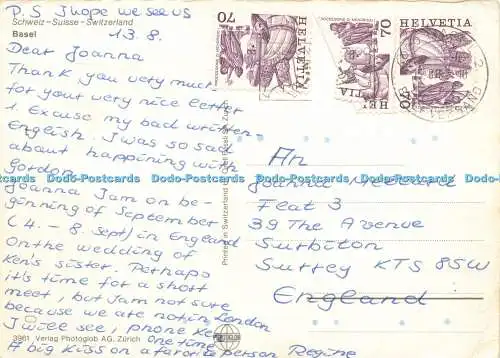 P.S I hope we see us
Schweiz - Suisse - Switzerland
Basel
13.8.
Dear Joanna
Thank you very much
for your very nice letter
! Excuse my bad written-
English. I was so sad
about happining with
Gordon.
Joanna I am on be-
ginning of September
(4. - 8. Sept) in England
On the wedding of
Ken's sister. Perhaps
it's time for a short
meet, but I am not sure
because we are not in London
I will see, phone Ken one time
A big kiss on a favorite person Regine
3961 Verlag Photoglob AG, Zürich
Printed in Switzerland
PHOTOGLOB
70
HELVETIA
70
HELVETIA
HELVETIA
An
Joanna
Flat 3
39 The Avenue
Surbiton
Surrey KT5 8SW
England
Dodo-Postcards Dodo-Postcards Dodo-Postcards Dodo-Postcards Dodo-Postcards